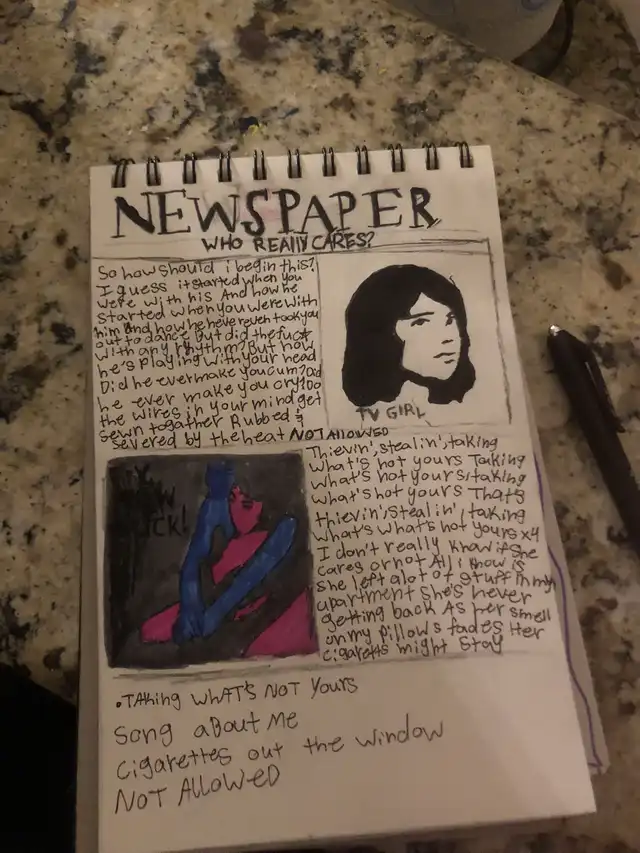 NEWSPAPER
WHO REALLY CARES?
So how should i begin this?
I guess it started when you
were with his And how he
started when you were with
him And how he never even took you
out to dance But did the fuc*
with any rhythm? But now
he's playing with your head
Did he ever make you cum? Did
he ever make you cry? Do
the wires in your mind get
sewn togather Rubbed &
severed by the heat NOT ALLOWED
TV GIRL
Thievin', stealin', taking
what's not yours Taking
what's not yours, taking
what's not yours That's
thievin', stealin', taking
what's what's not yours x4
I don't really know if she
cares or not All i know is
she left alot of stuff in my
apartment she's never
getting back As her smell
on my pillows fades Her
cigaretts might stay
.TAking WHAT'S NOT Yours
Song aBout Me
cigarettes out the window
NOT AllowED